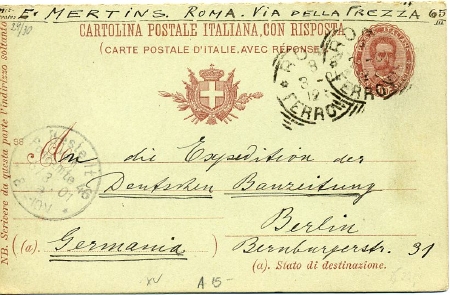 E. MERTINS. ROMA. VIA DELLA FREZZA 65
29/30
CARTOLINA POSTALE ITALIANA, CON RISPOSTA
(CARTE POSTALE D'ITALIE, AVEC RÉPONSE)
NB. Scrivere da questa parte l'indirizzo soltanto
An die Expedition der
Deutschen Bauzeitung
Berlin
(a). Germania
Bernburgerstr. 31
(a). Stato di destinazione.
A 15-